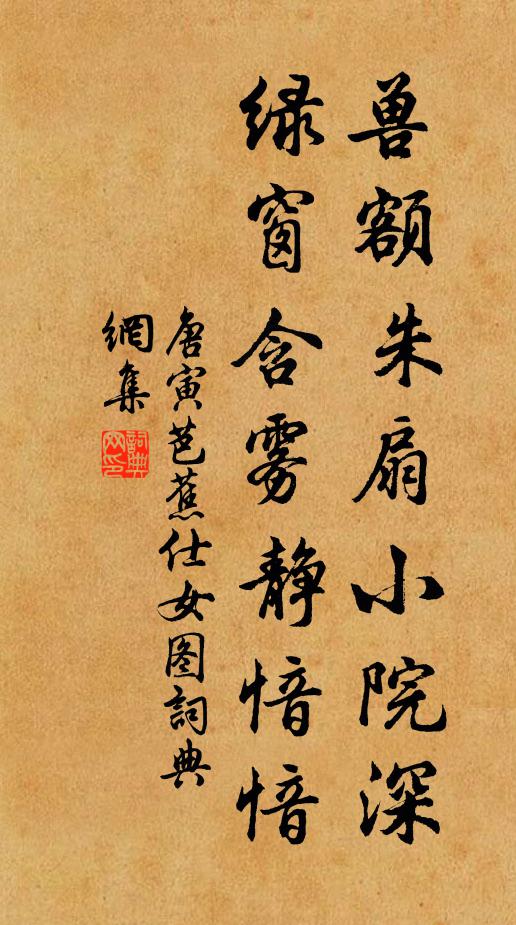 兽额朱扇小院深
绿窗含雾静愔愔
唐寅芭蕉仕女图詞典
網集
詞典
网印